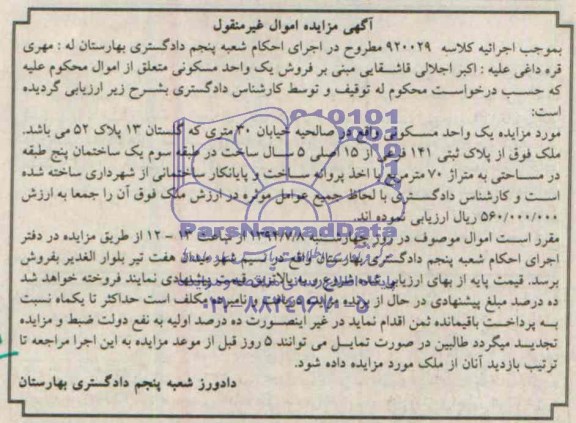 آگهی مزایده اموال غیرمنقول
بموجب اجرائیه کلاسه ۹۲۰۰۲۹ مطروح در اجرای احکام شعبه پنجم دادگستری بهارستان له : مهری
قره داغی علیه : اکبر اجلالی قاشقایی مبنی بر فروش یک واحد مسکونی متعلق از اموال محکوم علیه
که حسب درخواست محکوم له توقیف و توسط کارشناس دادگستری بشرح زیر ارزیابی گردیده
است:
مورد مزایده یک واحد مسکونی واقع در صالحیه خیابان ۳۰ متری که گلستان ۱۳ پلاک ۵۲ می باشد.
ملک فوق از پلاک ثبتی ۱۴۱ فرعی از ۱۵ اصلی ۵ سال ساخت در طبقه سوم یک ساختمان پنج طبقه
در مساحتی به متراژ ۷۰ مترمربع با اخذ پروانه ساخت و پایانکار ساختمانی از شهرداری ساخته شده
است و کارشناس دادگستری با لحاظ جمیع عوامل موثره در ارزش ملک فوق آن را جمعا به ارزش
۵۶۰/۰۰۰/۰۰۰ ریال ارزیابی نموده اند.
مقرر است اموال موصوف در روز چهارشنبه ۱۳۹۲/۷/۸ از ساعت ۱۳ - ۱۲ از طریق مزایده در دفتر
اجرای احکام شعبه پنجم دادگستری بهارستان واقع در نسیم شهر میدان هفت تیر بلوار الغدیر بفروش
برسد. قیمت پایه از بهای ارزیابی شده شروع به بالاترین قیمت پیشنهادی نمایند فروخته خواهد شد
ده درصد مبلغ پیشنهادی در حال از برنده مزایده دریافت و نامبرده مکلف است حداکثر تا یکماه نسبت
به پرداخت باقیمانده ثمن اقدام نماید در غیر اینصورت ده درصد اولیه به نفع دولت ضبط و مزایده
تجدید میگردد طالبین در صورت تمایل می توانند ۵ روز قبل از موعد مزایده به این اجرا مراجعه تا
ترتیب بازدید آنان از ملک مورد مزایده داده شود.
دادورز شعبه پنجم دادگستری بهارستان
ParsNamadData
۰۲۱-۸۸۳۴۹۶۷۰-۵